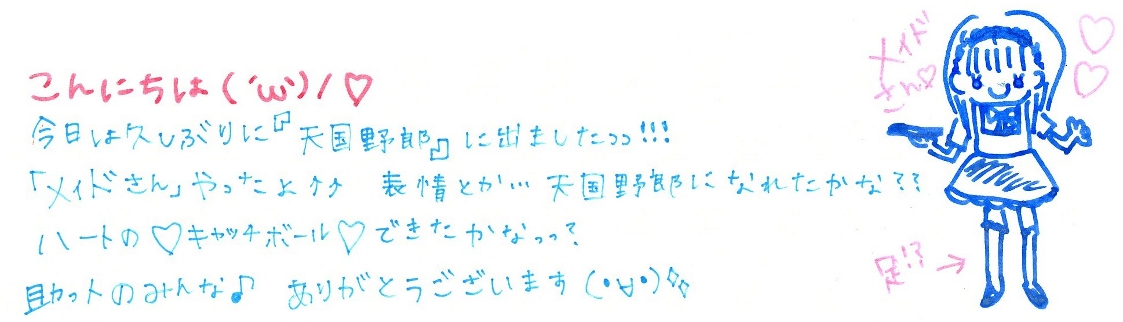 こんにちは(´ω`)/♡
今日は久しぶりに『天国野郎』に出ましたっっ!!!
「メイドさん」やったよ↑↑ 表情とか… 天国野郎になれたかな??
ハートの♡キャッチボール♡できたかなっっ?
助っ人のみんな♪ ありがとうございます(・∀・)
メイド
さん♡
足!?→